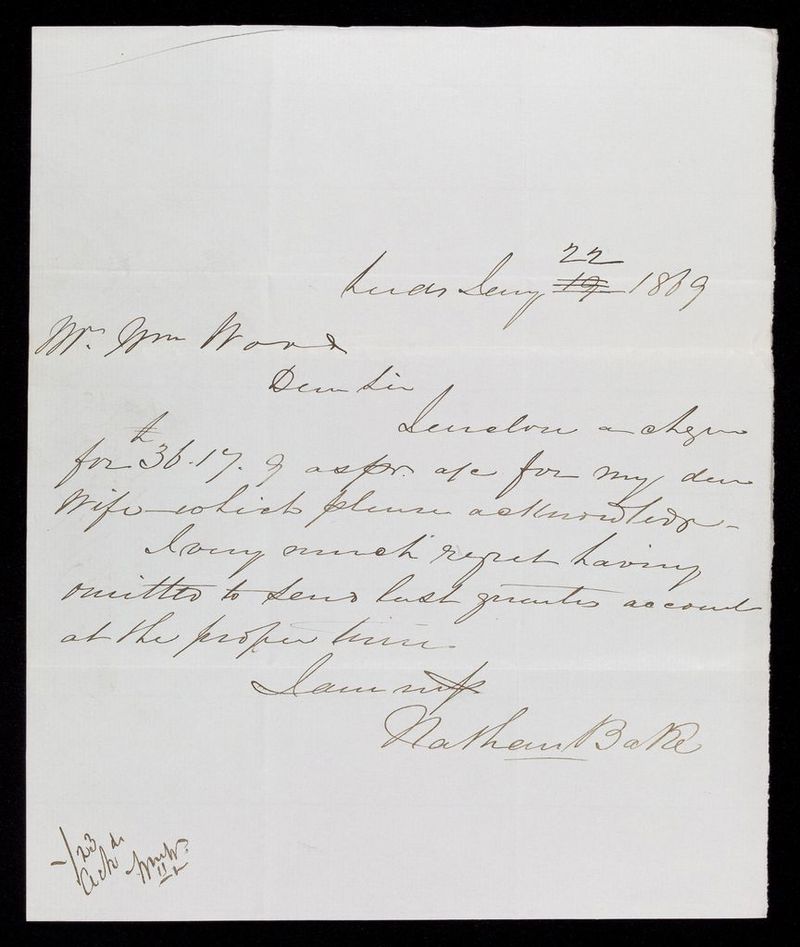 22
Leeds Jany 19 1869
Mr. Wm Wood
Dear Sir
I enclose a cheque
for £36.17.9 as pr. a/c for my dear
Wife which please acknowledge -
I very much regret having
omitted to send last quarters account
at the proper time.
I am
Nathan Bake
1/23
Ackd.